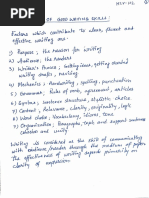 OF GOOD WRITING SKILL:
Factors which contribute to clear, fluent and
effective writing are:
1) Purpose; the reason for writing
2) Audience; the readers
3) Writer's Process; Getting ideas, getting started
writing drafts, revising
4) Mechanics; Handwriting, spelling, punctuation
5) Grammar; Rules of verb, agreement, articles
6) Syntax; Sentence structure, style
7) Content; Relevance, clarity, originality, logic
8) Word choice; Vocabulary, idiom, tone
9) Organization; Paragraphs, topic and support
cohesion and unity
Writing is considered as the skill of communicating
with audience/readers through the medium of paper
the effectiveness of writing depends primarily on
clarity of expression.